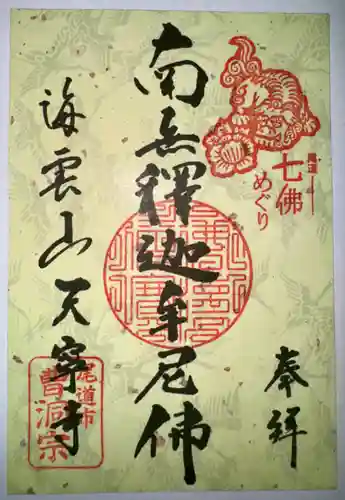 七佛
めぐり
奉拝
南無釋迦牟尼佛
海雲山天寧寺
尾道市
曹洞宗